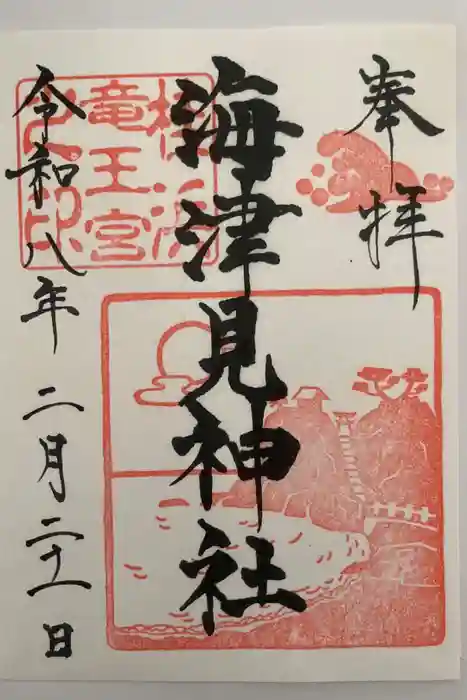 奉拝
海津見神社
桂浜
竜王宮
之印
令和八年二月二十一日